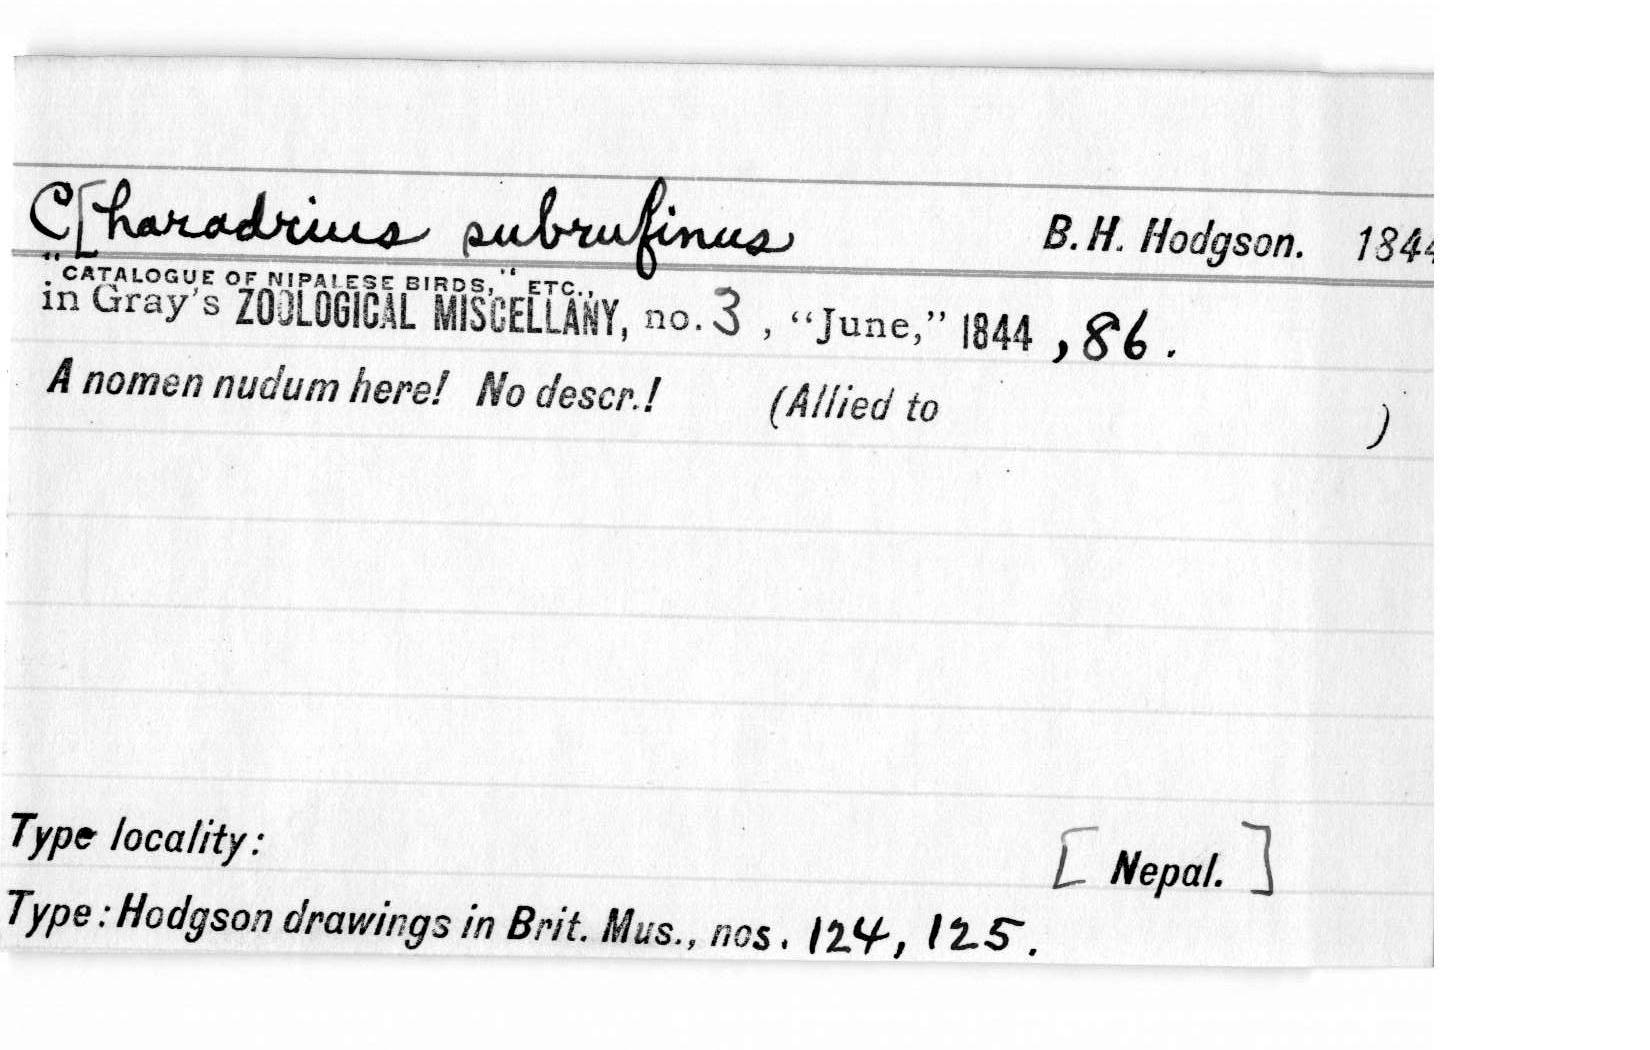 C[haradrius subrufinus B. H. Hodgson. 1844
"CATALOGUE OF NIPALESE BIRDS," ETC.,
in Gray's ZOOLOGICAL MISCELLANY, no. 3, “June,” 1844, 86.
A nomen nudum here! No descr.! (Allied to )
Type locality: [ Nepal. ]
Type: Hodgson drawings in Brit. Mus., nos. 124, 125.